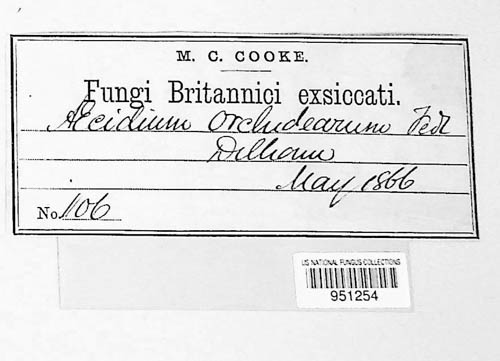 M. C. COOKE.
Fungi Britannici exsiccati.
Æcidium Orchidearum Fedl
Dilham
May 1866
No. 106
US NATIONAL FUNGUS COLLECTIONS
951254